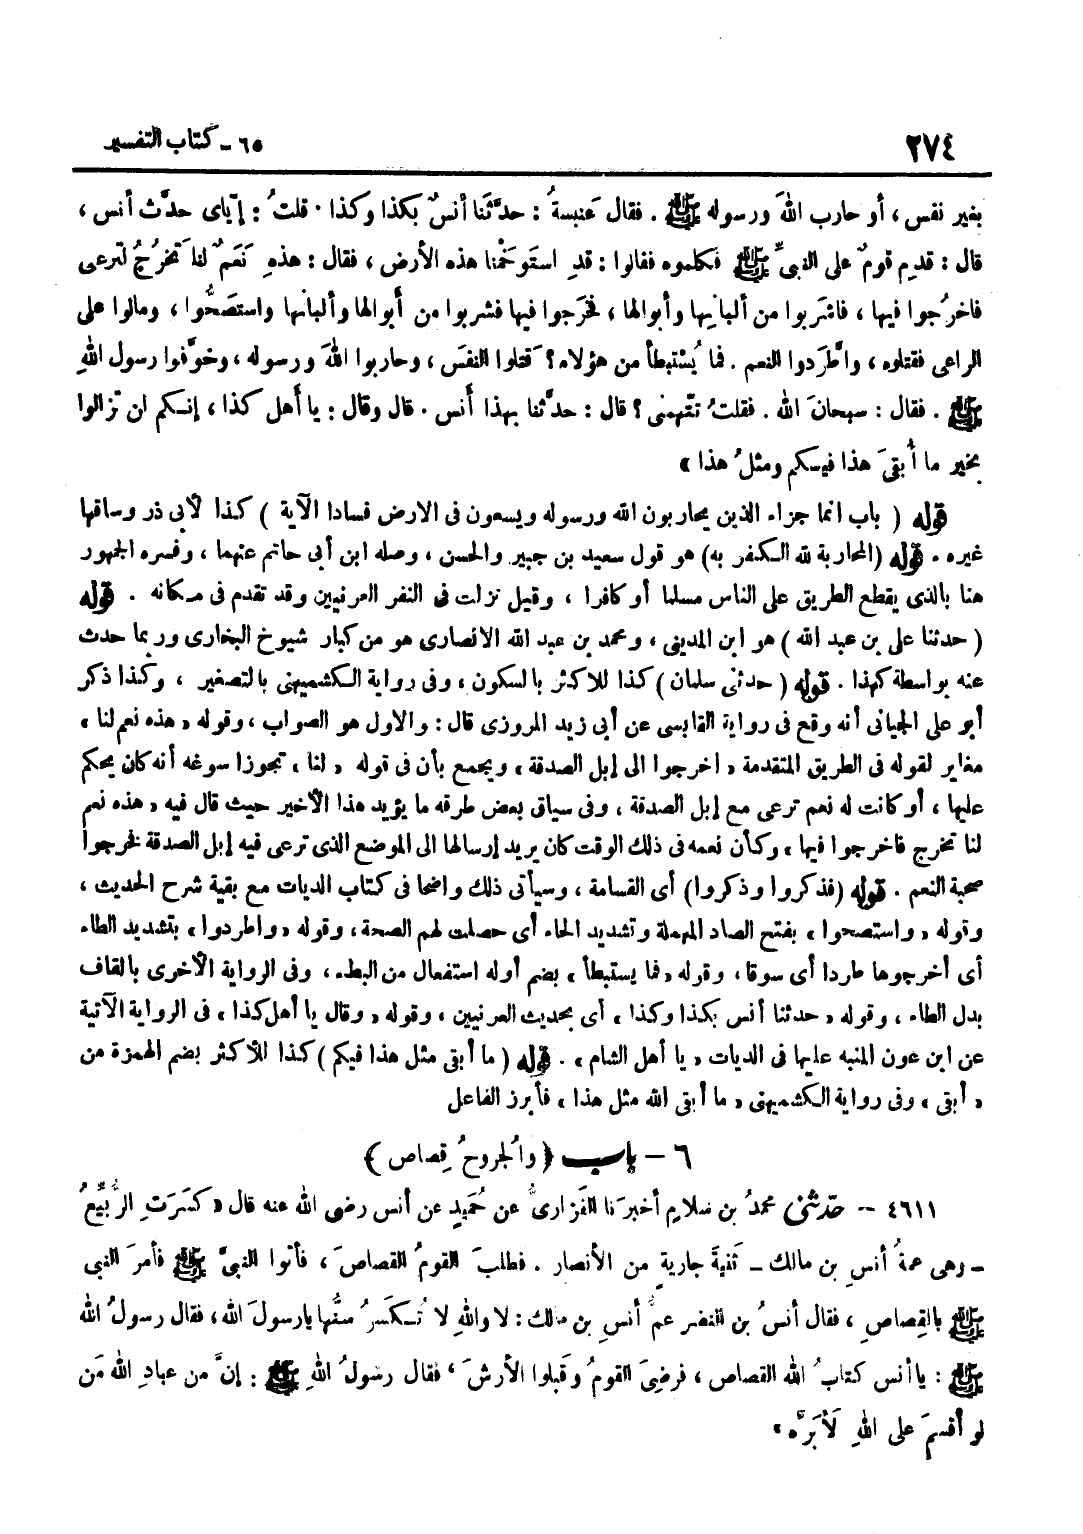 ٢٧٤
٦٥ - كتاب التفسير
بغير نفس ، أو حارب اللهَ ورسوله ﷺ . فقال عَنبسةُ : حدَّثَنا أنسٌ بكذا وكذا . قلتُ : إيّاى حدَّث أنس ،
قال : قدِم قومٌ على النبىِّ ﷺ فكلموه فقالوا : قدِ استَوخَمْنا هذه الأرض ، فقال : هذهِ نَعَمٌ لنا تَخرُجُ لترعى
فاخرُجوا فيها ، فاشرَبوا من ألبانِها وأبوالها ، فخرَجوا فيها فشربوا من أبوالها وألبانها واستَصَحُّوا ، ومالوا على
الراعى فقتلوه ، واطَّرَدوا النعم . فما يُستبطأ من هؤلاء ؟ قَتلوا النفسَ ، وحاربوا اللهَ ورسوله ، وخوَّفوا رسول اللهِ
ﷺ . فقال : سبحانَ الله . فقلتُ تتَّهمنى ؟ قال : حدَّثنا بهذا أنس . قال وقال : يا أهل كذا ، إنـكم لن تزالوا
بخير ما أُبقىَ هذا فيـكم ومثلُ هذا »
قوله ( باب انما جزاء الذين يحاربون الله ورسوله ويسعون فى الارض فسادا الآية ) كذا لأبى ذر وساقها
غيره . قوله (المحاربة لله الـكفر به) هو قول سعيد بن جبير والحسن ، وصله ابن أبى حاتم عنهما ، وفسره الجمهور
هنا بالذى يقطع الطريق على الناس مسلما أو كافرا ، وقيل نزلت فى النفر العرنيين وقد تقدم فى مـكانه . قوله
( حدثنا على بن عبد الله ) هو ابن المدينى ، ومحمد بن عبد الله الانصارى هو من كبار شيوخ البخارى وربما حدث
عنه بواسطة كهذا . قوله ( حدثنى سلمان ) كذا للاكثر بالسكون ، وفى رواية الـكشميهنى بالتصغير ، وكذا ذكر
أبو على الجيانى أنه وقع فى رواية القابسى عن أبى زيد المروزى قال : والاول هو الصواب ، وقوله « هذه نعم لنا »
مغاير لقوله فى الطريق المتقدمة « اخرجوا الى إبل الصدقة » ويجمع بأن فى قوله « لنا » تجوزا سوغه أنه كان يحكم
عليها ، أو كانت له نعم ترعى مع إبل الصدقة ، وفى سياق بعض طرقه ما يؤيد هذا الأخير حيث قال فيه « هذه نعم
لنا تخرج فاخرجوا فيها » وكأن نعمه فى ذلك الوقت كان يريد إرسالها الى الموضع الذى ترعى فيه إبل الصدقة فخرجوا
صحبة النعم . قوله (فذكروا وذكروا) أى القسامة ، وسيأتى ذلك واضحا فى كتاب الديات مع بقية شرح الحديث ،
وقوله « واستصحوا » بفتح الصاد المهملة وتشديد الحاء أى حصلت لهم الصحة ، وقوله « واطردوا » بتشديد الطاء
أى أخرجوها طردا أى سوقا ، وقوله « فما يستبطأ » بضم أوله استفعال من البطء ، وفى الرواية الأخرى بالقاف
بدل الطاء ، وقوله « حدثنا أنس بكذا وكذا » أى بحديث العرنيين ، وقوله « وقال يا أهل كذا » فى الرواية الآتية
عن ابن عون المنبه عليها فى الديات « يا أهل الشام » . قوله ( ما أبقى مثل هذا فيكم ) كذا للأكثر بضم الهمزة من
« أبقى » وفى رواية الـكشميهنى « ما أبقى الله مثل هذا » فأبرز الفاعل
٦ - باب ﴿ والجُروحُ قِصاص ﴾
٤٦١١ - حدّثنى محمدُ بن سلامٍ أخبرَنا الفَزارىُّ عن حُمَيدٍ عن أنس رضى الله عنه قال « كسَرَتِ الرُّبَيِّعُ
- وهى عمةُ أنسِ بن مالك - ثَنيةَ جاريةٍ من الأنصار . فطلبَ القومُ القصاصَ ، فأتوا النبىَّ ﷺ فأمرَ النبى
ﷺ بالقِصاصِ ، فقال أنسُ بن النضر عمُّ أنسِ بن مالك : لا واللهِ لا تُـكسَرُ سنُّها يارسولَ الله ، فقال رسولُ الله
ﷺ : يا أنس كتابُ الله القصاص ، فرضِىَ القومُ وقَبلوا الأرشَ ، فقال رسولُ اللهِ ﷺ : إنَّ من عبادِ الله مَن
لو أقسمَ على اللهِ لأَبرَّه »